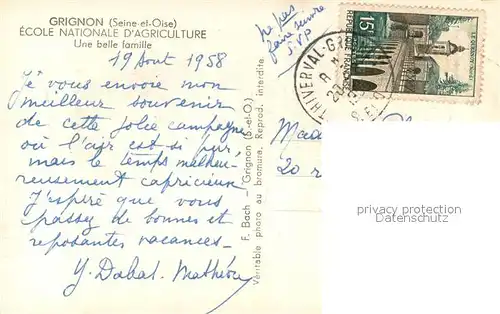 GRIGNON (Seine-et-Oise)
ÉCOLE NATIONALE D'AGRICULTURE
Une belle famille
19 Août 1958
Je vous envoie mon
meilleur souvenir
de cette jolie campagne
où l'air est si pur,
mais le temps malheu-
reusement capricieux
J'espère que vous
passez de bonnes et
reposantes vacances -
Y. Dabat.
ne pas
faire suivre
S.V.P
F. Bach - Grignon (S.-et-O.)
Véritable photo au bromure. Reprod. interdite.
THIVERVAL-G
15F
LE QUESNOY
Mad
20 r
privacy protection
Datenschutz